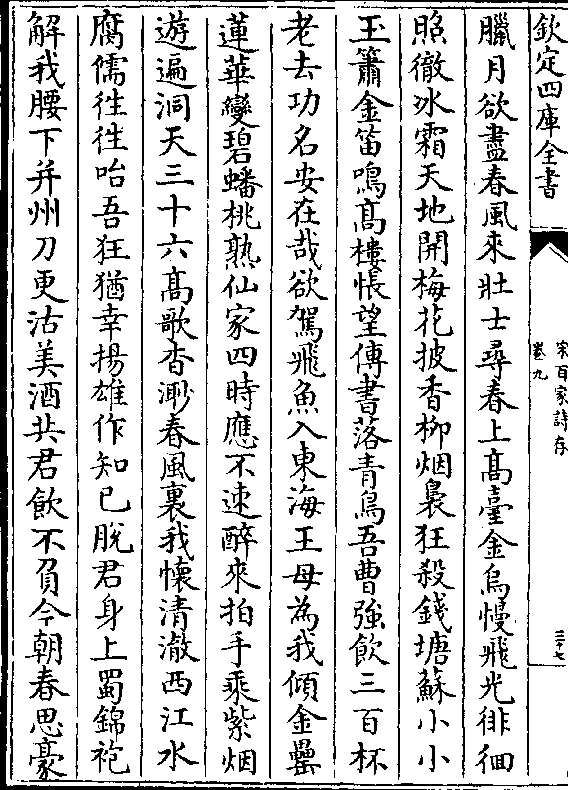 欽定四庫全書
宋百家詩存
卷九
三十七
臘月欲盡春風來壯士尋春上髙臺金烏慢飛光徘徊
照徹氷霜天地開梅花披香栁烟裊狂殺錢塘蘇小小
玉簫金笛鳴髙樓悵望傳書落青鳥吾曹強飲三百杯
老去功名安在哉欲駕飛魚入東海王母為我傾金罍
蓮華變碧蟠桃熟仙家四時應不速醉來拍手乘紫烟
遊遍洞天三十六髙歌杳渺春風裏我懷清澈西江水
腐儒徃徃咍吾狂猶幸揚雄作知已脫君身上蜀錦袍
解我腰下并州刀更沽美酒共君飲不負今朝春思豪